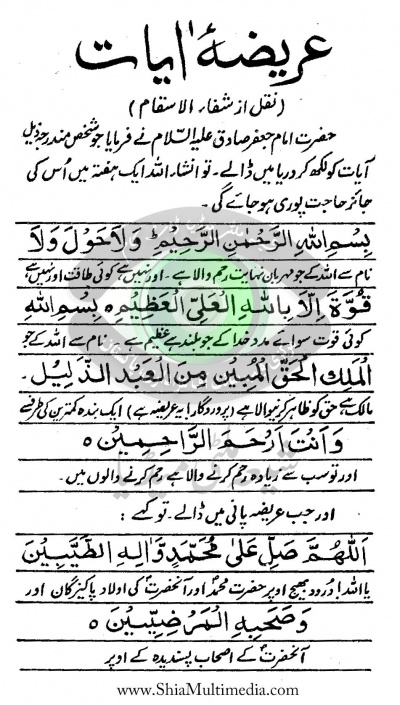 عریضۂ آیات
(نقل از شفاء الاسقام)
حضرت امام جعفر صادق علیہ السّلام نے فرمایا جو شخص مندرجہ ذیل
آیات کو لکھ کر دریا میں ڈالے۔ تو انشاء اللہ ایک ہفتہ میں اُس کی
جائز حاجت پوری ہو جائے گی۔
بِسْمِ اللهِ الرَّحْمٰنِ الرَّحِيْمِ وَلَا حَوْلَ وَلَا
نام سے اللہ کے جو مہربان نہایت رحم والا ہے۔ اور نہیں ہے کوئی طاقت اور نہیں ہے
قُوَّةَ اِلَّا بِاللهِ الْعَلِيِّ الْعَظِيْمِ ہ بِسْمِ اللهِ
کوئی قوت سوائے مدد خدا کے جو بلند ہے عظیم ہے۔ نام سے اللہ کے جو
الْمَلِكِ الْحَقِّ الْمُبِيْنِ مِنَ الْعَبْدِ الذَّلِيْلِ۔
مالک ہے حق کو ظاہر کرنیوالا ہے (پروردگار! یہ عریضہ ہے) ایک بندہ کمترین کی طرف سے
وَاَنْتَ اَرْحَمَ الرَّاحِمِيْنَ ہ
اور تو سب سے زیادہ رحم کرنے والا ہے رحم کرنے والوں میں۔
اور جب عریضہ پانی میں ڈالے۔ تو کہے :
اَللّٰهُمَّ صَلِّ عَلٰى مُحَمَّدٍ وَّاٰلِهِ الطَّيِّبِيْنَ
یا اللہ! دُرود بھیج اوپر حضرت محمدؐ اور آنحضرتؐ کی اولاد پاکیزگان اور
وَصَحْبِهِ الْمَرْضِيِّيْنَ ہ
آنحضرتؐ کے اصحاب پسندیدہ کے اوپر
www.ShiaMultimedia.com